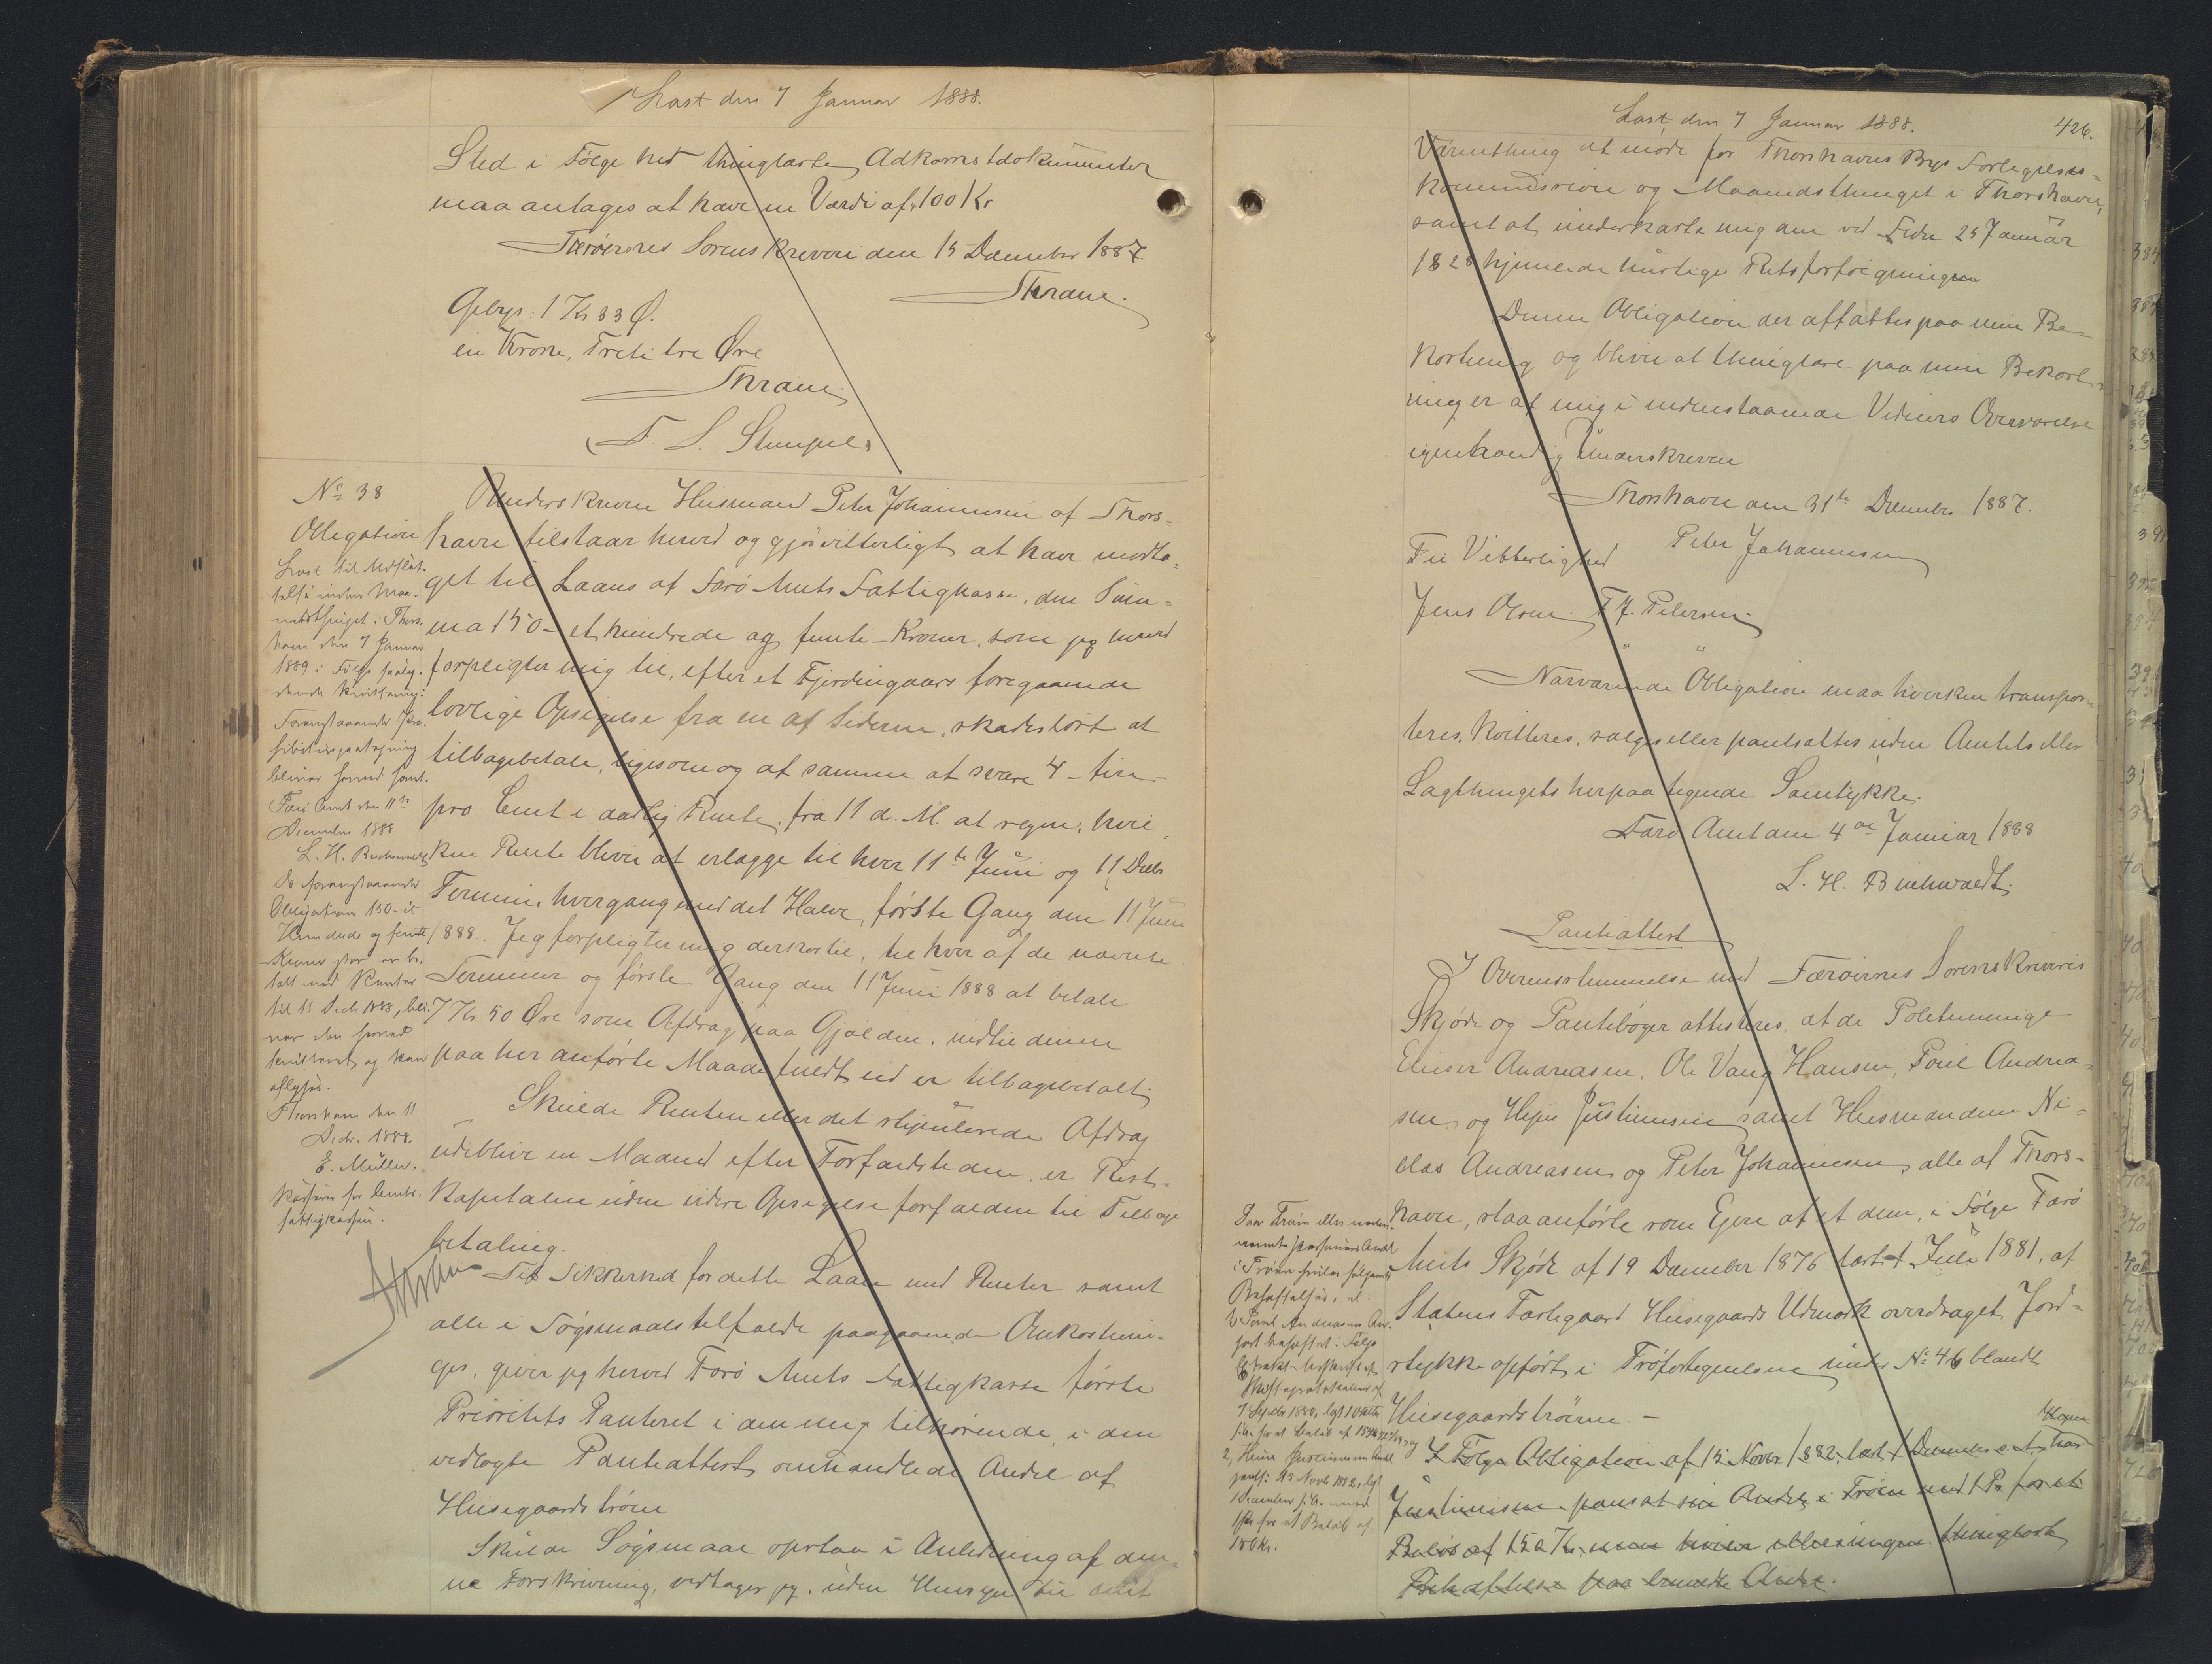 Læst den 7 Januar 1888.
Sted i Følge hid thinglæste Adkomstdokumenter
maa antages at have en Værdi af 100 Kr
Færøernes Sorenskriveri den 15 December 1887.
Thrane.
Gebyr: 1 Kr 33 Ø.
en Krone, Treti tre Øre
Thrane.
(L. S. Stempel)
No 38
Obligation
Læst til Udslet-
telse inden Maa-
nedsthinget i Thors-
havn den 7 Januar
1889 i Følge saaly-
dende Kvittering:
Foranstaaende Pro-
hibitivpaategning
bliver herved hævet.
Færø Amt den 11te
December 1888
L. H. Buchwaldt
Da foranstaaende
Obligation 150 - et
Hundrede og femti
Kroner stor er be-
talt med Renter
til 11 Decbr 1888, bli-
ver den herved
kvitteret og kan
aflyses.
Thorshavn den 11
Decbr. 1888.
E. Müller.
Kasserer for Amts-
fattigkassen.
Thrane
Underskreven Huusmand Peter Johannesen af Thors-
havn tilstaar herved og gjør vitterligt at have modta-
get til Laans af Færø Amts Fattigkasse, den Sum-
ma 150 - et hundrede og femti - Kroner, som jeg herved
forpligter mig til, efter et Fjerdingaars foregaaende
lovlige Opsigelse fra en af Siderne, skadesløst at
tilbagebetale, ligesom og af samme at svare 4 - fire -
pro Cent i aarlig Rente, fra 11 d. M. at regne, hvil-
ken Rente bliver at erlægge til hver 11te Juni og 11 Decbr
Termin, hvergang med det Halve, første Gang den 11 Juni
1888. Jeg forpligter mig derhos til, til hver af de nævnte
Terminer og første Gang den 11 Juni 1888 at betale
7 Kr 50 Øre som Afdrag paa Gjælden, indtil denne
paa her anførte Maade fuldt ud er tilbagebetalt.
Skulde Renten eller det stipulerede Afdrag
udeblive en Maaned efter Forfaldstiden, er Rest-
kapitalen uden videre Opsigelse forfalden til Tilbage
betaling.
Til Sikkerhed for dette Laan med Renter samt
alle i Søgsmaalstilfælde paagaaende Omkostnin-
ger, giver jeg herved Færø Amts Fattigkasse første
Prioritets Panteret i den mig tilhørende, i den
vedlagte Panteattest omhandlede Andel af
Huusgaardstrøen
Skulde Søgsmaal opstaa i Anledning af den-
ne Forskrivning, vedtager jeg, uden Hensyn til mit
Læst den 7 Januar 1888.
426.
Værnething at møde for Thorshavns Byes Forligelses-
kommission og Maanedsthinget i Thorshavn,
samt at underkaste mig den ved Frdn 25 Januar
1828 hjemlede hurtige Retsforfølgning
Denne Obligation der affattes paa min Be-
kostning og bliver at thinglæse paa min Bekost-
ning er af mig i undenstaaende Vidners Overværelse
egenhændig Underskreven
Thorshavn den 31te December 1887.
Peter Johannesen
Til Vitterlighed
Jens Olsen. F J. Petersen
Nærværende Obligation maa hverken transpor-
teres, kvitteres, sælges eller pantsættes uden Amtets eller
Lagthingets herpaa tegnede Samtykke.
Færø Amt den 4de Januar 1888
L. H. Buchwaldt.
Panteattest
I Overensstemmelse med Færøernes Sorenskriveris
Skjøde og Pantebøger attesteres, at de Politimænge
Elieser Andreasen, Ole Vang Hansen, Poul Andrea-
sen og Hejne Justinussen samt Huusmændene Ni-
clas Andreasen og Peter Johannesen alle af Thors-
havn, staa anførte som Ejere af et dem, i Følge Færø
Amts Skjøde af 19 December 1876 læst 1 Juli 1881, af
Statens Fæstegaard Huusgaards Udmark overdraget Jord-
stykke opført i Trøfortegnelsen under No 46 blandt
Huusgaardstrøerne. -
I Følge Obligation af 15 Novbr 1882, læst 1 December s. A. har Hejne
Justinussen pansat sin Andel i Trøen med 1 Pr for et
Beløb af 150 Kr.
Behæftelse paa bemeldte Andel.
Paa Trøen eller neden-
nævnte Personers Andel
i Trøen hviler følgende
Behæftelser,
1) Poul Andreasens An-
part behæftet i Følge
7 Septbr 1880, lyst
2, Heine Justinussens Andel
pants. 15 Novbr 1882, lyst
1 December s. A. med
1ste Pr for et Beløb af
150 Kr.